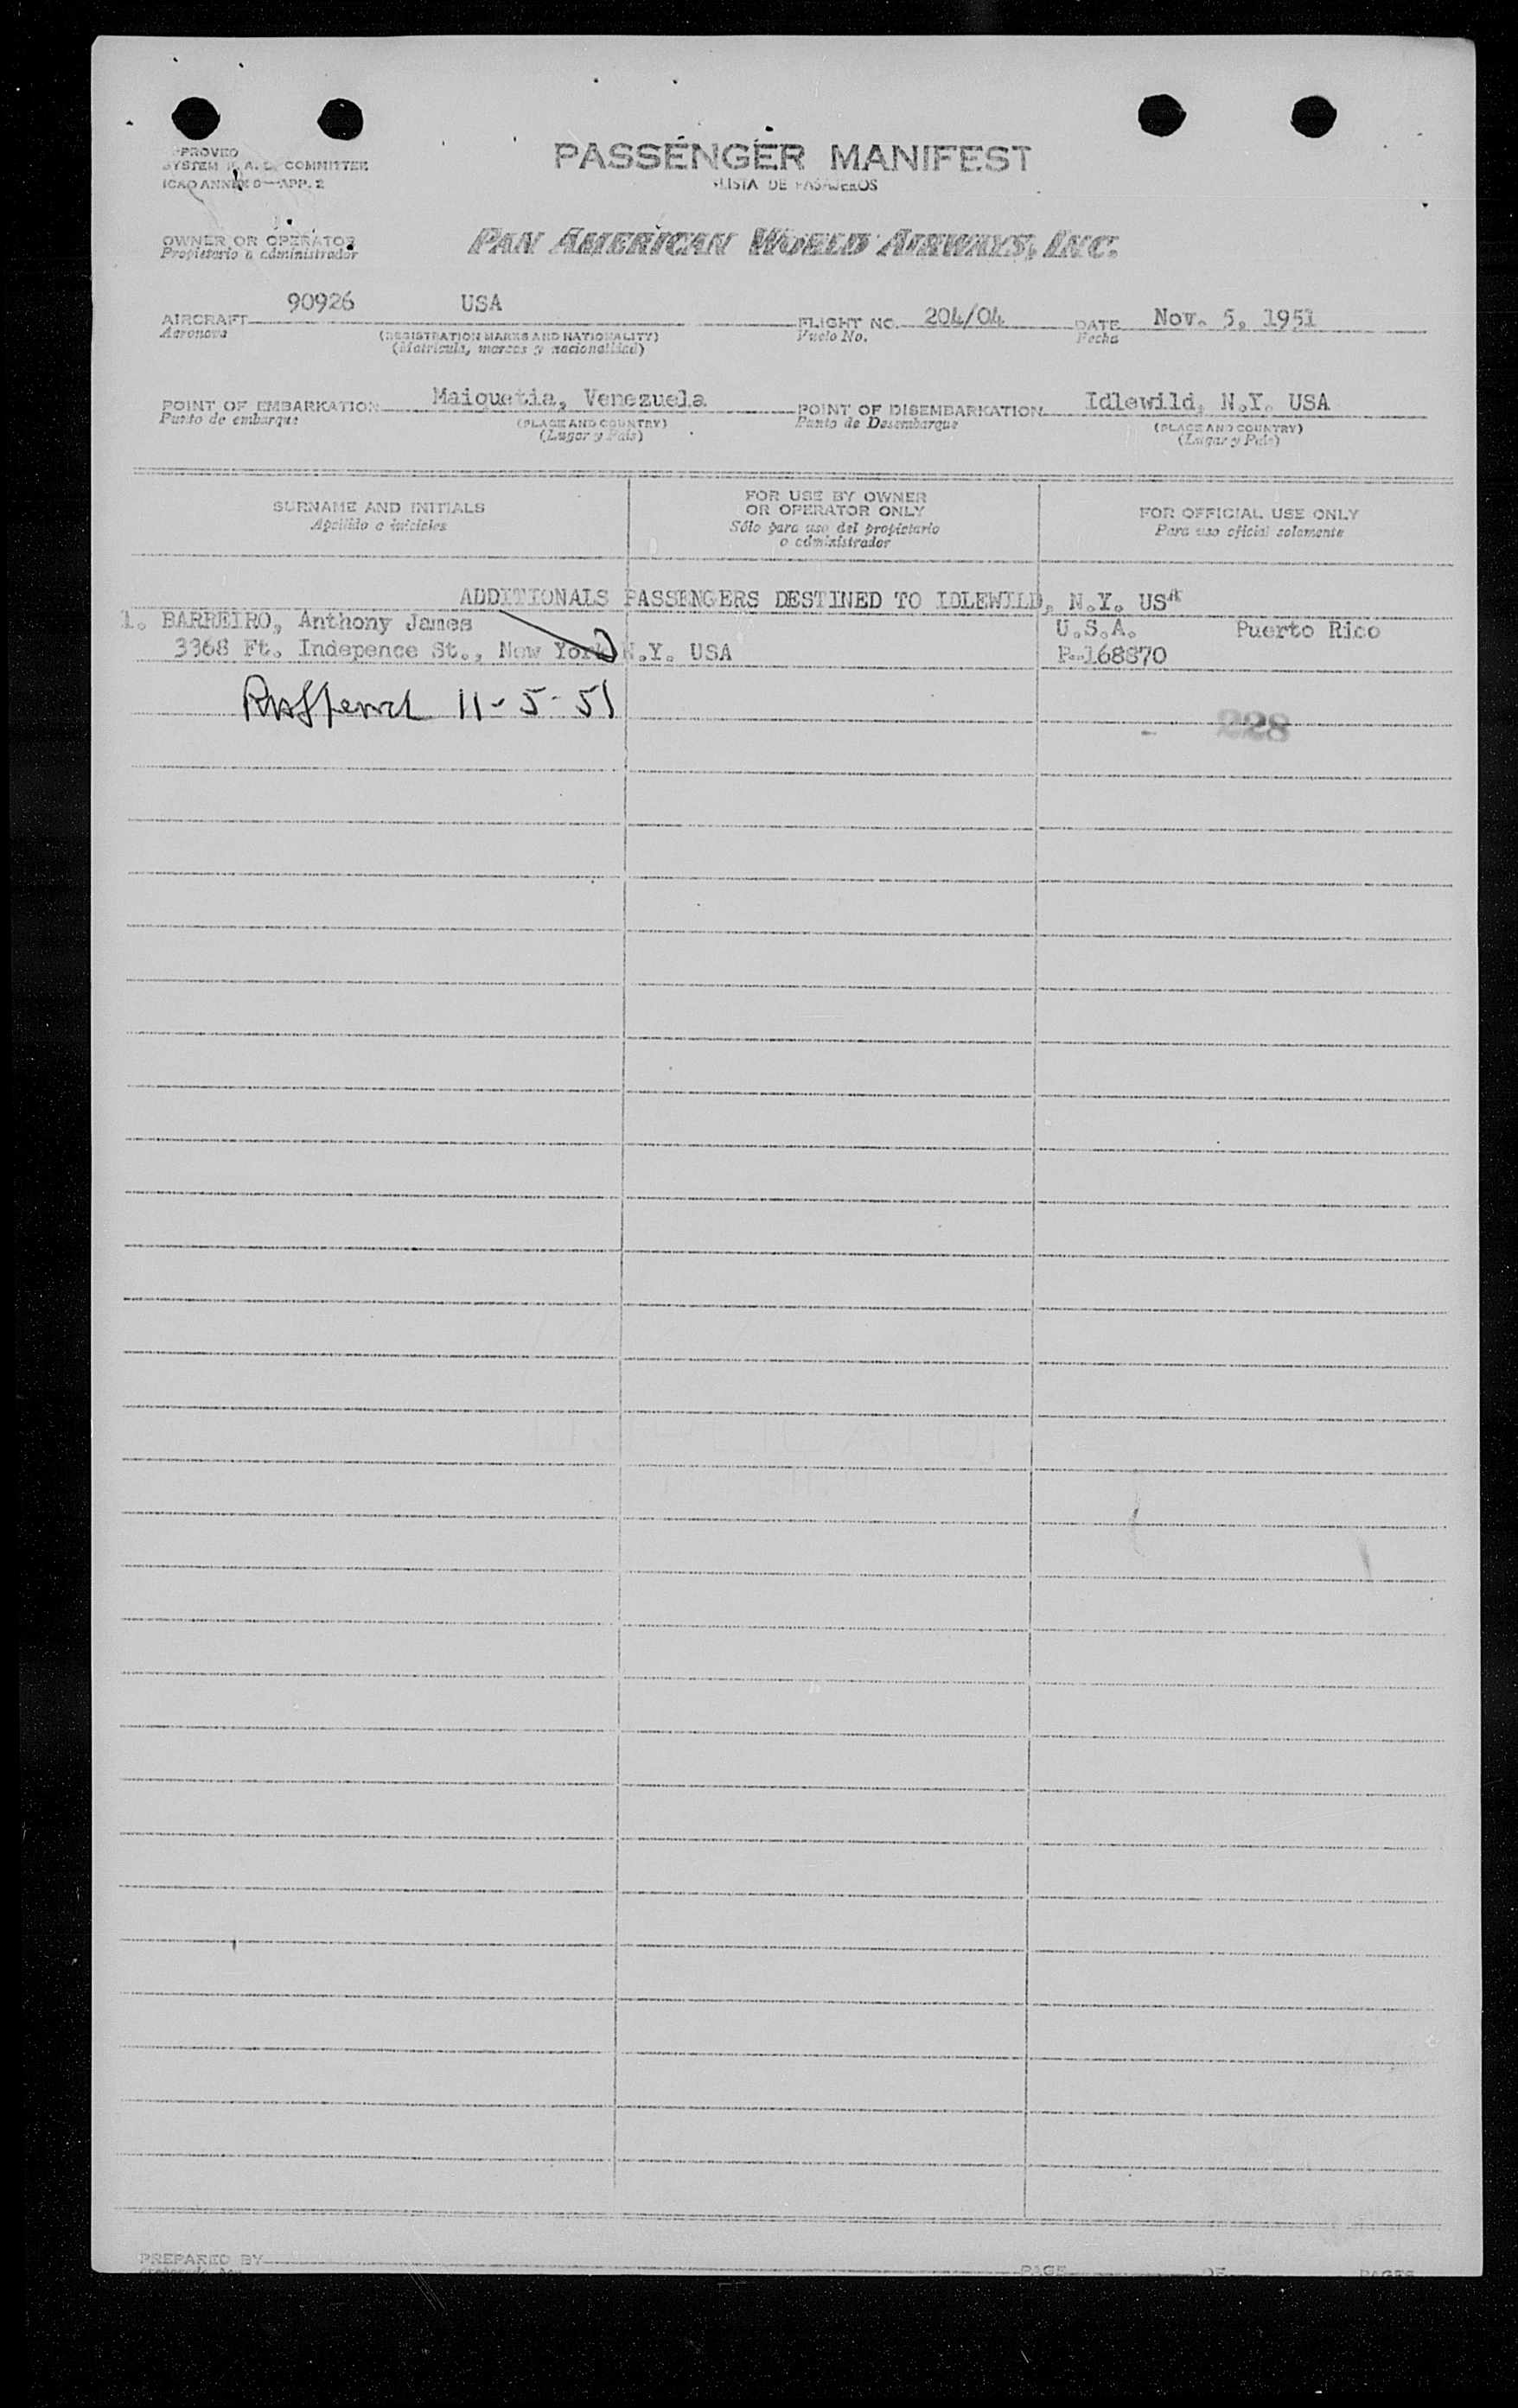 PASSENGER MANIFEST
LISTA DE PASAJEROS
PROVED
SYSTEM F. A. L. COMMITTEE
ICAO ANNEX 9—APP. 2
OWNER OR OPERATOR
Propietario o administrador
PAN AMERICAN WORLD AIRWAYS, INC.
AIRCRAFT 90926 USA
Aeronave
(REGISTRATION MARKS AND NATIONALITY)
(Matricula, marcas y nacionalidad)
FLIGHT NO. 204/04
Vuelo No.
DATE Nov. 5, 1951
Fecha
POINT OF EMBARKATION Maiquetia, Venezuela
Punto de embarque
(PLACE AND COUNTRY)
(Lugar y País)
POINT OF DISEMBARKATION Idlewild, N.Y. USA
Punto de Desembarque
(PLACE AND COUNTRY)
(Lugar y País)
SURNAME AND INITIALS
Apellido e iniciales
FOR USE BY OWNER
OR OPERATOR ONLY
Sólo para uso del propietario
o administrador
FOR OFFICIAL USE ONLY
Para uso oficial solamente
ADDITIONALS PASSENGERS DESTINED TO IDLEWILD, N.Y. USA
1. BARREIRO, Anthony James U.S.A. Puerto Rico
3368 Ft. Indepence St., New York N.Y. USA P-168870
11-5-51
228
PREPARED BY
PAGE OF PAGES